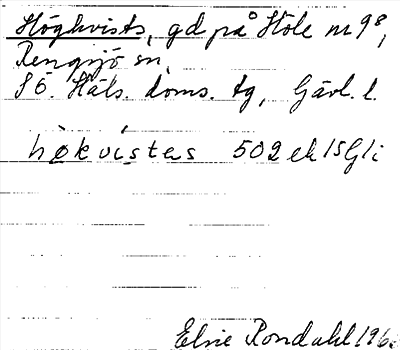 Högkvists, gd på Höle nr 9⁸,
Rengsjö sn,
SÖ. Häls. doms. tg, Gävl. l.
hökvistas 502 ek 15G1i
Elsie Rondahl 196